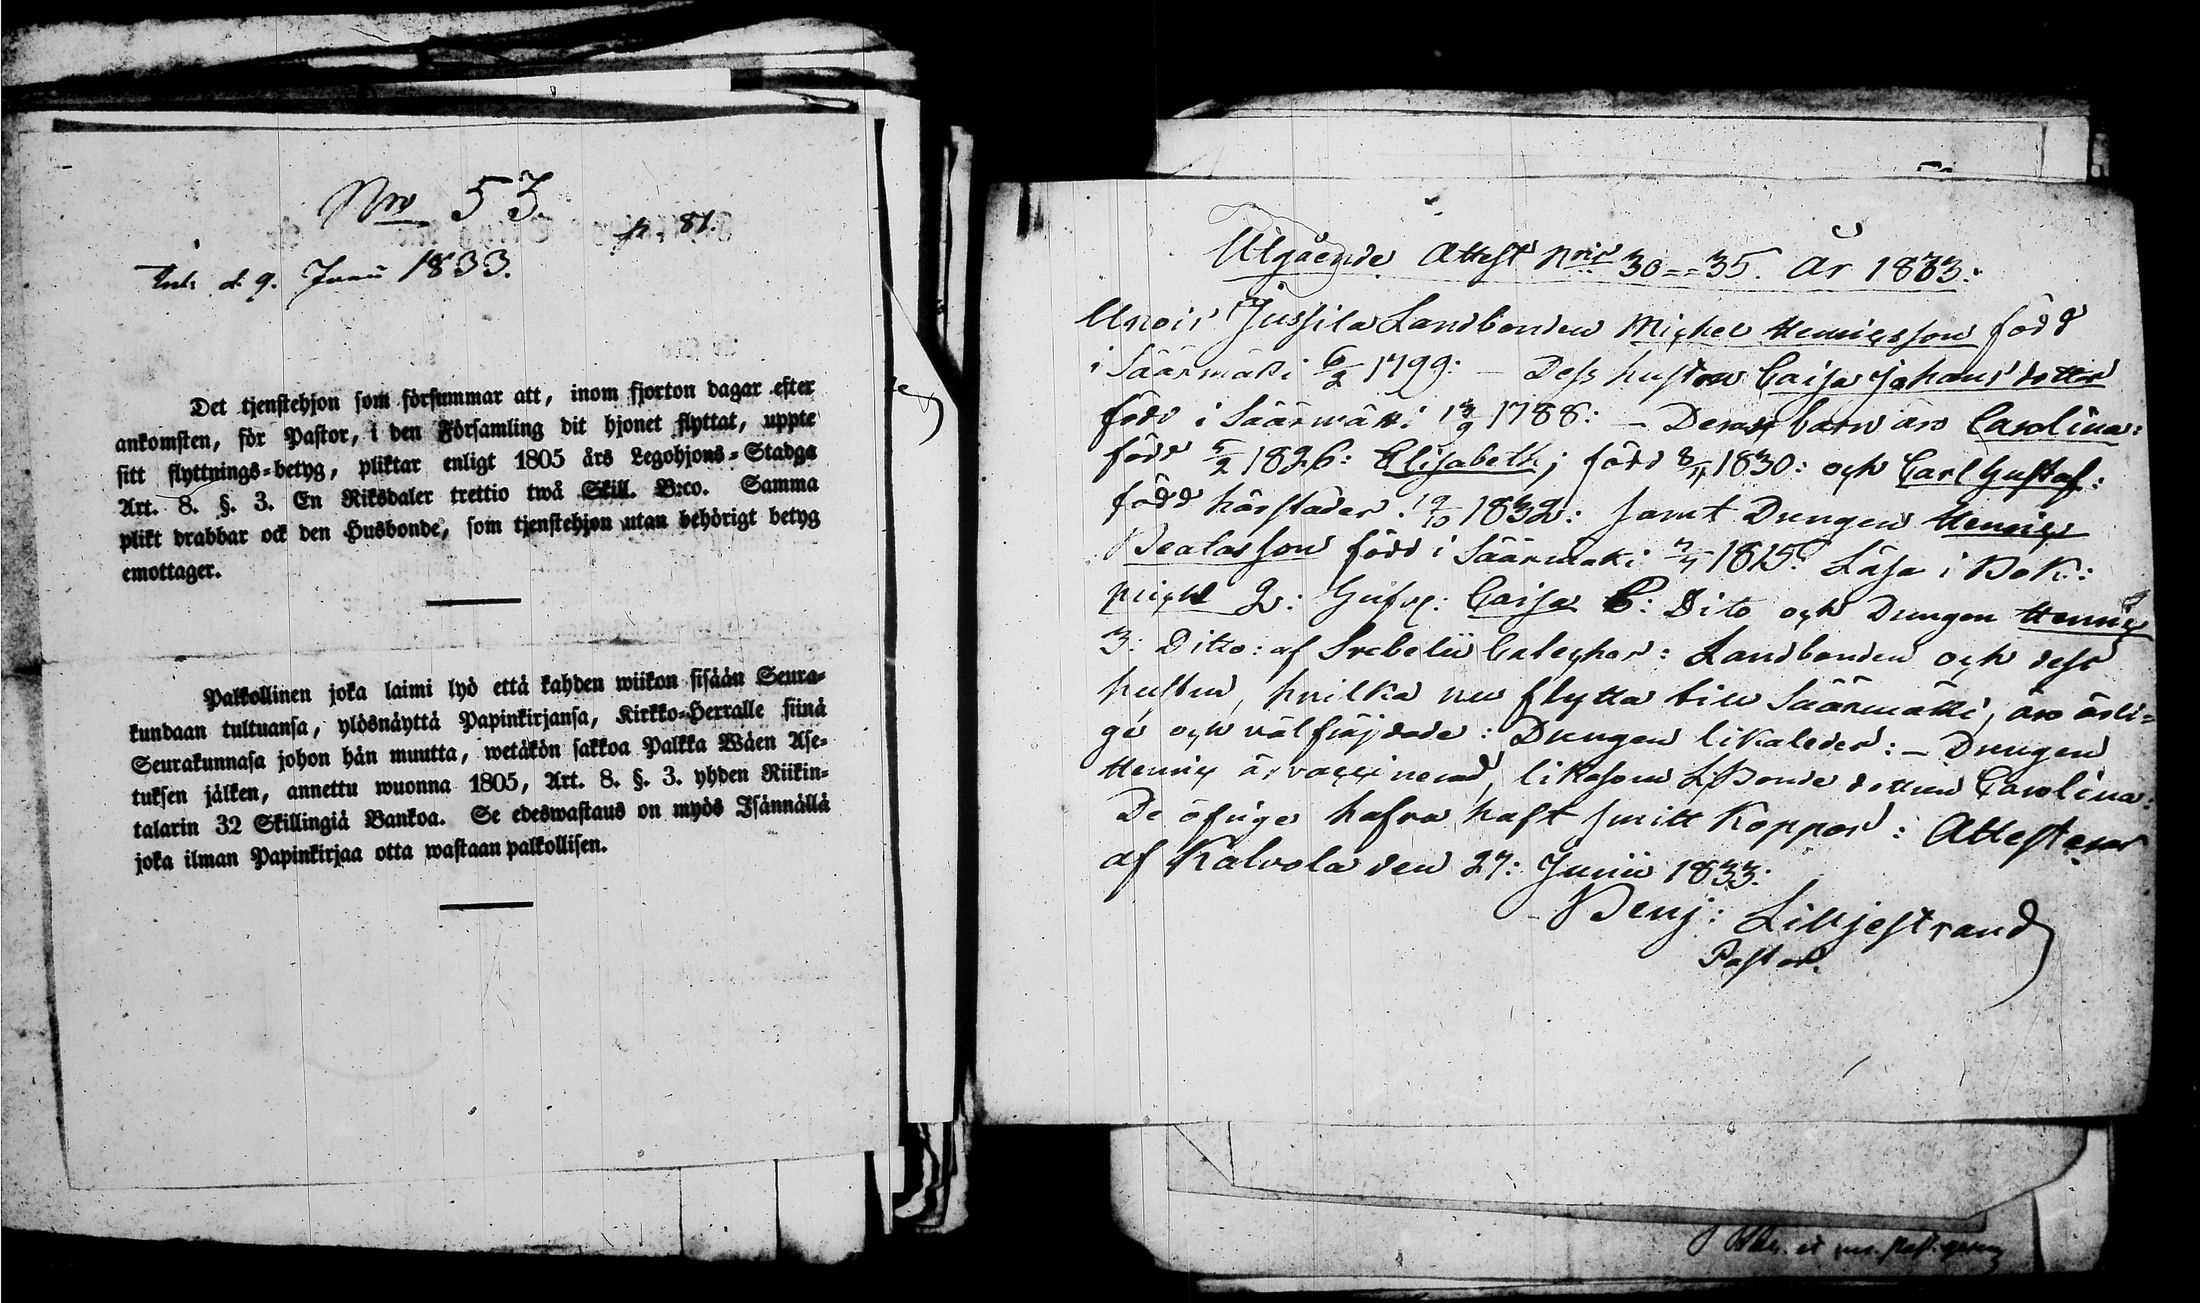 Nro 53.
p. 81.
Ink. d. 9. Junii 1833.
Det tjenstehjon som försummar att, inom fjorton dagar efter
ankomsten, för Pastor, i den Församling dit hjonet flyttat, uppte
sitt flyttnings-betyg, pliktar enligt 1805 års Legohjons-Stadga
Art. 8. §. 3. En Riksdaler trettio twå Skill. B:co. Samma
plikt drabbar ock den Husbonde, som tjenstehjon utan behörigt betyg
emottager.
Palkollinen joka laimi lyö että kahden wiikon sisään Seura-
kundaan tultuansa, ylösnäyttä Papinkirjansa, Kirkko-Herralle siinä
Seurakunnasa johon hän muutta, wetäkön sakkoa Palkka Wäen Ase-
tuksen jälken, annettu wuonna 1805, Art. 8. §. 3. yhden Riikin-
talarin 32 Skillingiä Bankoa. Se edeswastaus on myös Isännällä
joka ilman Papinkirjaa otta wastaan palkollisen.
Utgående Attest Nris 30--35. År 1833:
Unois Jussila Landbonden Michel Henricsson född
i Säärmäki 6/2 1799: - Dess hustru Caisa Johansdotter
född i Säärmäki 13/9 1788: - Deras barn äro Carolina:
född 5/2 1826: Elisabeth; född 8/11 1830: och Carl Gustaf:
född härstädes: 9/10 1832: samt Drengen Henric
Beatasson född i Säärmäki 1815: Läsa i Bok:
2: Hust: Caisa C: Dito och Drengen Henric
3: Ditto: af Svebelii Cateches: Landbonden och dess
hustru, hvilka nu flytta till Säärmäki, äro ärli-
ge och välfräjdade: Drengen likaledes: - Drengen
Henric är vaccinerad, likasom LBonde dottren Carolina:
De öfrige hafva haft smitt Koppor: Attesterar
af Kalvola den 27: Junii 1833:
Benj: Lilljestrand
Pastor.